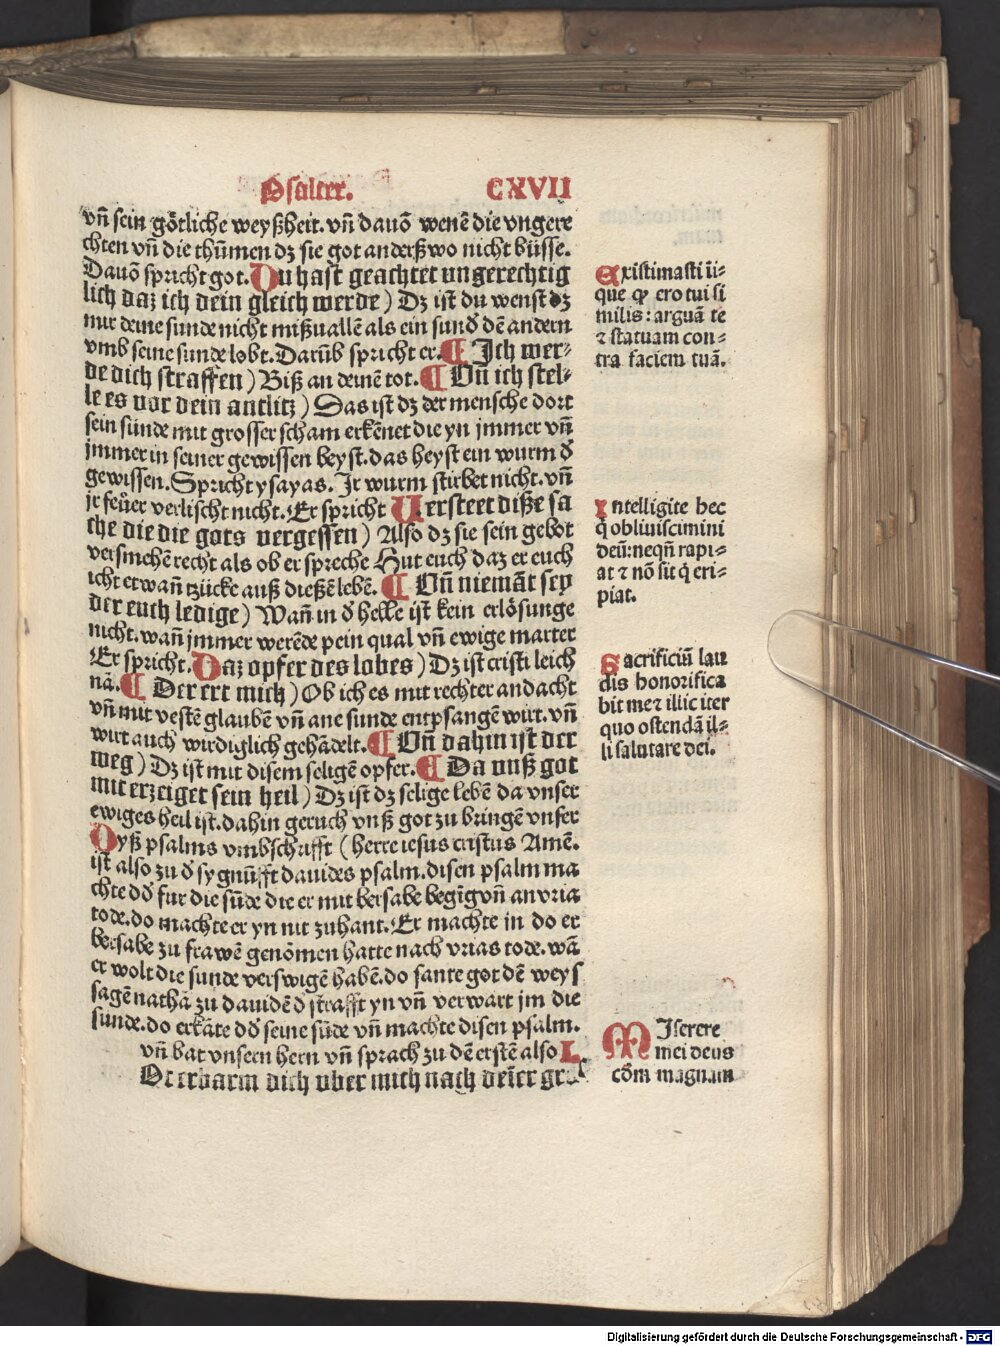 Psalter. CXVII
vn̄ sein götliche weyßheit. vn̄ dauō wenē die vngere
chten vn̄ die thūmen dz sie got anderßwo nicht büsse.
Dauō spricht got. Du hast geachtet ungerechtig
lich daz ich dein gleich werde) Dz ist du wenst dz
mir deine sunde nicht mißuallē als ein sund dē andern
vmb seine sunde lobt. Darūb spricht er. Ich wer⸗
de dich straffen) Biß an deinē tot. Vn̄ ich stel⸗
le es vor dein antlitz) Das ist dz der mensche dort
sein sünde mit grosser scham erkēnet die yn jmmer vn̄
jmmer in seiner gewissen beyst. das heyst ein wurm d̄
gewissen. Spricht ysayas. Ir wurm stirbet nicht. vn̄
jr feüer verlischt nicht. Er spricht Versteet diße sa
che die die gots vergessen) Also dz sie sein gebot
versmehē recht als ob er spreche Hut euch daz er euch
icht etwan̄ tzücke auß dießē lebē. Vn̄ niemāt sey
der euch ledige) Wan̄ in d̄ helle ist kein erlösunge
nicht. wan̄ jmmer werēde pein qual vn̄ ewige marter
Er spricht. Daz opfer des lobes) Dz ist cristi leich
nā. Der ert mich) Ob ich es mit rechter andacht
vn̄ mit vestē glaubē vn̄ ane sunde entpfangē wirt. vn̄
wirt auch wirdiglich gehādelt. Vn̄ dahin ist der
weg) Dz ist mit disem seligē opfer. Da vnß got
mit erzeiget sein heil) Dz ist dz selige lebē da vnser
ewiges heil ist. dahin geruch vnß got zu bringē vnser
Dyß psalms vmbschrifft (herre iesus cristus Amē.
ist also zu d̄ sygnūfft dauides psalm. disen psalm ma
chte dd̄ fur die sūde die er mit bersabe begīg vn̄ an vria
tode. do machte er yn nit zuhant. Er machte in do er
bersabe zu frawē genōmen hatte nach vrias tode. wā
er wolt die sunde verswigē habē. do sante got dē weys
sagē nathā zu dauidē d̄ strafft yn vn̄ verwart jm die
sunde. do erkāte dd̄ seine sūde vn̄ machte disen psalm.
vn̄ bat vnsern hern vn̄ sprach zu dē erstē also L
Ot erbarm dich vber mich nach dein̄er
Existimasti ii⸗
que ꝙ ero tui si
milis: arguā te
⁊ statuam con⸗
tra faciem tuā.
Intelligite hec
q̄ obliuiscimini
deū: neqn̄ rapi⸗
at ⁊ nō sit q̄ eri⸗
piat.
Sacrificiū lau
dis honorifica
bit me: ⁊ illic iter
quo ostendā il⸗
li salutare dei.
MIserere
mei deus
scd̄m magnam
Digitalisierung gefördert durch die Deutsche Forschungsgemeinschaft - DFG